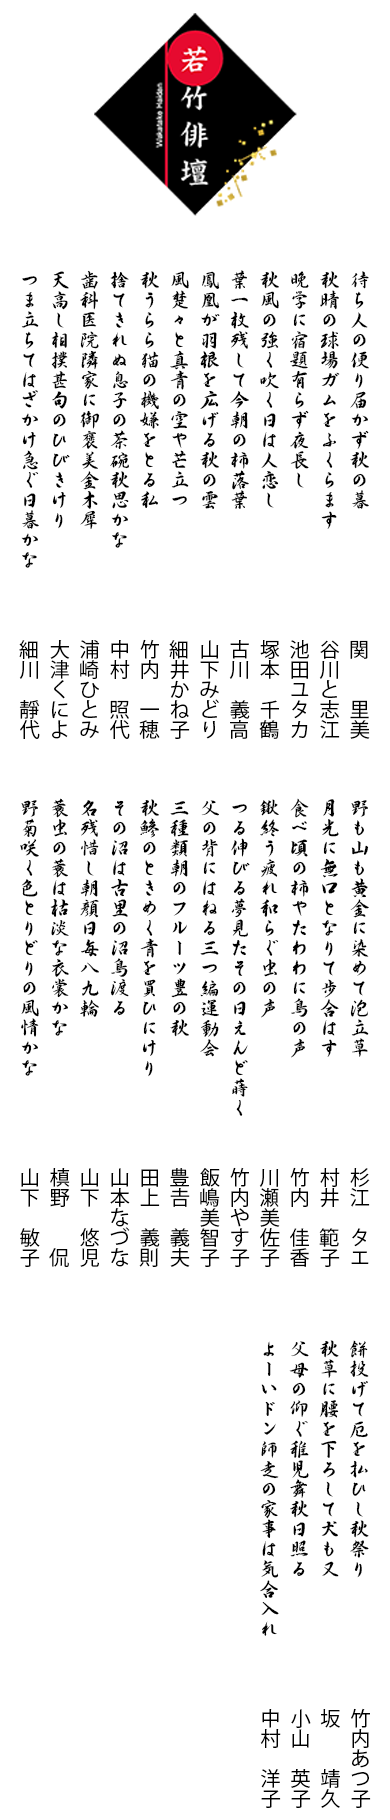 若竹俳壇
Wakatake Haidan
待ち人の便り届かず秋の暮
秋晴の球場ガムをふくらます
晩学に宿題有らず夜長し
秋風の強く吹く日は人恋し
葉一枚残して今朝の柿落葉
鳳凰が羽根を広げる秋の雲
風楚々と真青の空や芒立つ
秋うらら猫の機嫌をとる私
捨てきれぬ息子の茶碗秋思かな
歯科医院隣家に御褒美金木犀
天高し相撲甚句のひびきけり
つま立ちてはざかけ急ぐ日暮かな
関 里美
谷川と志江
池田ユタカ
塚本 千鶴
古川 義高
山下みどり
細井かね子
竹内 一穂
中村 照代
浦崎ひとみ
大津くによ
細川 靜代
野も山も黄金に染めて泡立草
月光に無口となりて歩合はす
食べ頃の柿やたわわに鳥の声
鍬終う疲れ和らぐ虫の声
つる伸びる夢見たその日えんど蒔く
父の背にはねる三つ編運動会
三種類朝のフルーツ豊の秋
秋鯵のときめく青を買ひにけり
その沼は古里の沼鳥渡る
名残惜し朝顔日毎八九輪
蓑虫の蓑は枯淡な衣裳かな
野菊咲く色とりどりの風情かな
杉江 タエ
村井 範子
竹内 佳香
川瀬美佐子
竹内やす子
飯嶋美智子
豊𠮷 義夫
田上 義則
山本なづな
山下 悠児
槙野 侃
山下 敏子
餅投げて厄を払ひし秋祭り
秋草に腰を下ろして犬も又
父母の仰ぐ稚児舞秋日照る
よーいドン師走の家事は気合入れ
竹内あつ子
坂 靖久
小山 英子
中村 洋子